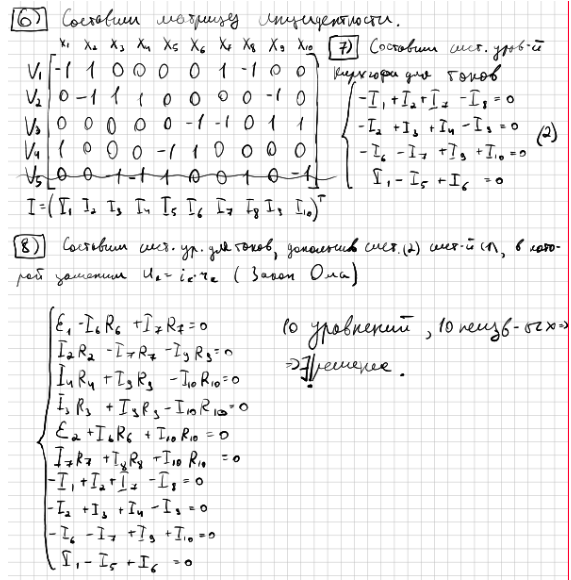 6) Составим матрицу инцидентности.
x₁ x₂ x₃ x₄ x₅ x₆ x₇ x₈ x₉ x₁₀
V₁ -1 1 0 0 0 0 1 -1 0 0
V₂ 0 -1 1 1 0 0 0 0 -1 0
V₃ 0 0 0 0 0 -1 -1 0 1 1
V₄ 1 0 0 0 -1 1 0 0 0 0
V₅ 0 0 -1 -1 1 0 0 1 0 -1
I = (I₁ I₂ I₃ I₄ I₅ I₆ I₇ I₈ I₉ I₁₀)ᵀ
7) Составим сист. урав-й
Кирхгофа для токов
-I₁ + I₂ + I₇ - I₈ = 0
-I₂ + I₃ + I₄ - I₉ = 0
-I₆ - I₇ + I₉ + I₁₀ = 0
I₁ - I₅ + I₆ = 0
(2)
8) Составим сист. ур. для токов, дополнив сист. (2) сист-й (1), в кото-
рой заменим u₂ = i₂·r₂ (Закон Ома)
ℰ₁ - I₆R₆ + I₇R₇ = 0
I₂R₂ - I₇R₇ - I₉R₉ = 0
I₄R₄ + I₉R₉ - I₁₀R₁₀ = 0
I₃R₃ + I₉R₉ - I₁₀R₁₀ = 0
ℰ₂ + I₆R₆ + I₁₀R₁₀ = 0
I₇R₇ + I₈R₈ + I₁₀R₁₀ = 0
-I₁ + I₂ + I₇ - I₈ = 0
-I₂ + I₃ + I₄ - I₉ = 0
-I₆ - I₇ + I₉ + I₁₀ = 0
I₁ - I₅ + I₆ = 0
10 уравнений, 10 неизв-ых =>
=> ∃! решение.